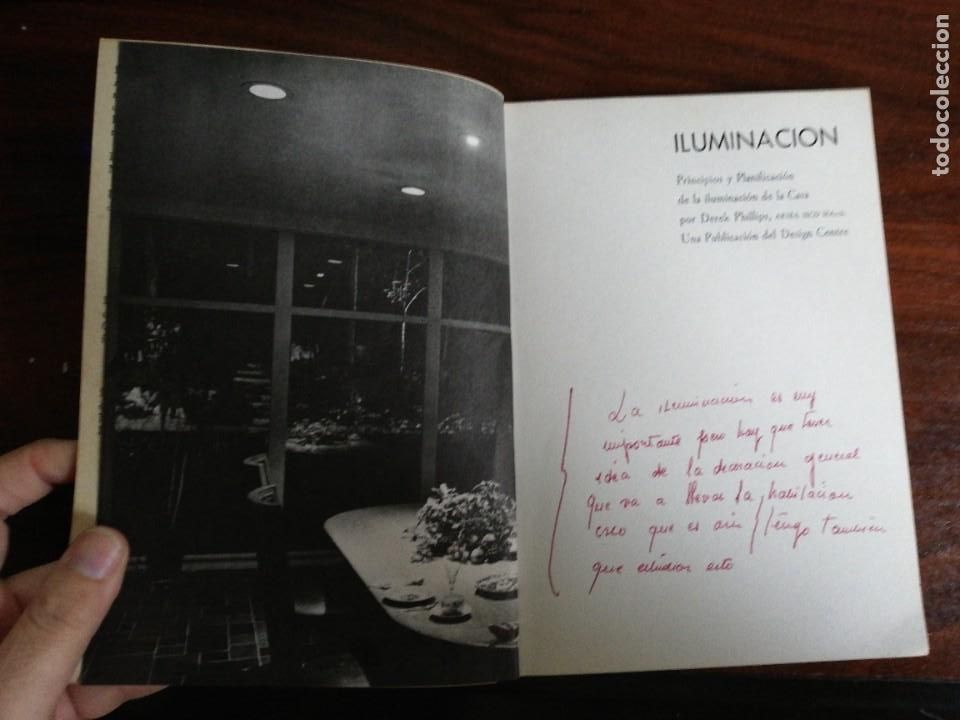 ILUMINACION
Principios y Planificación
de la iluminación de la Casa
por Derek Phillips,
Una Publicación del Design Centre
La iluminación es muy
importante pero hay que tener
idea de la decoración general
que va a llevar la habitación
creo que es asi / Tengo también
que estudiar esto
todocoleccion